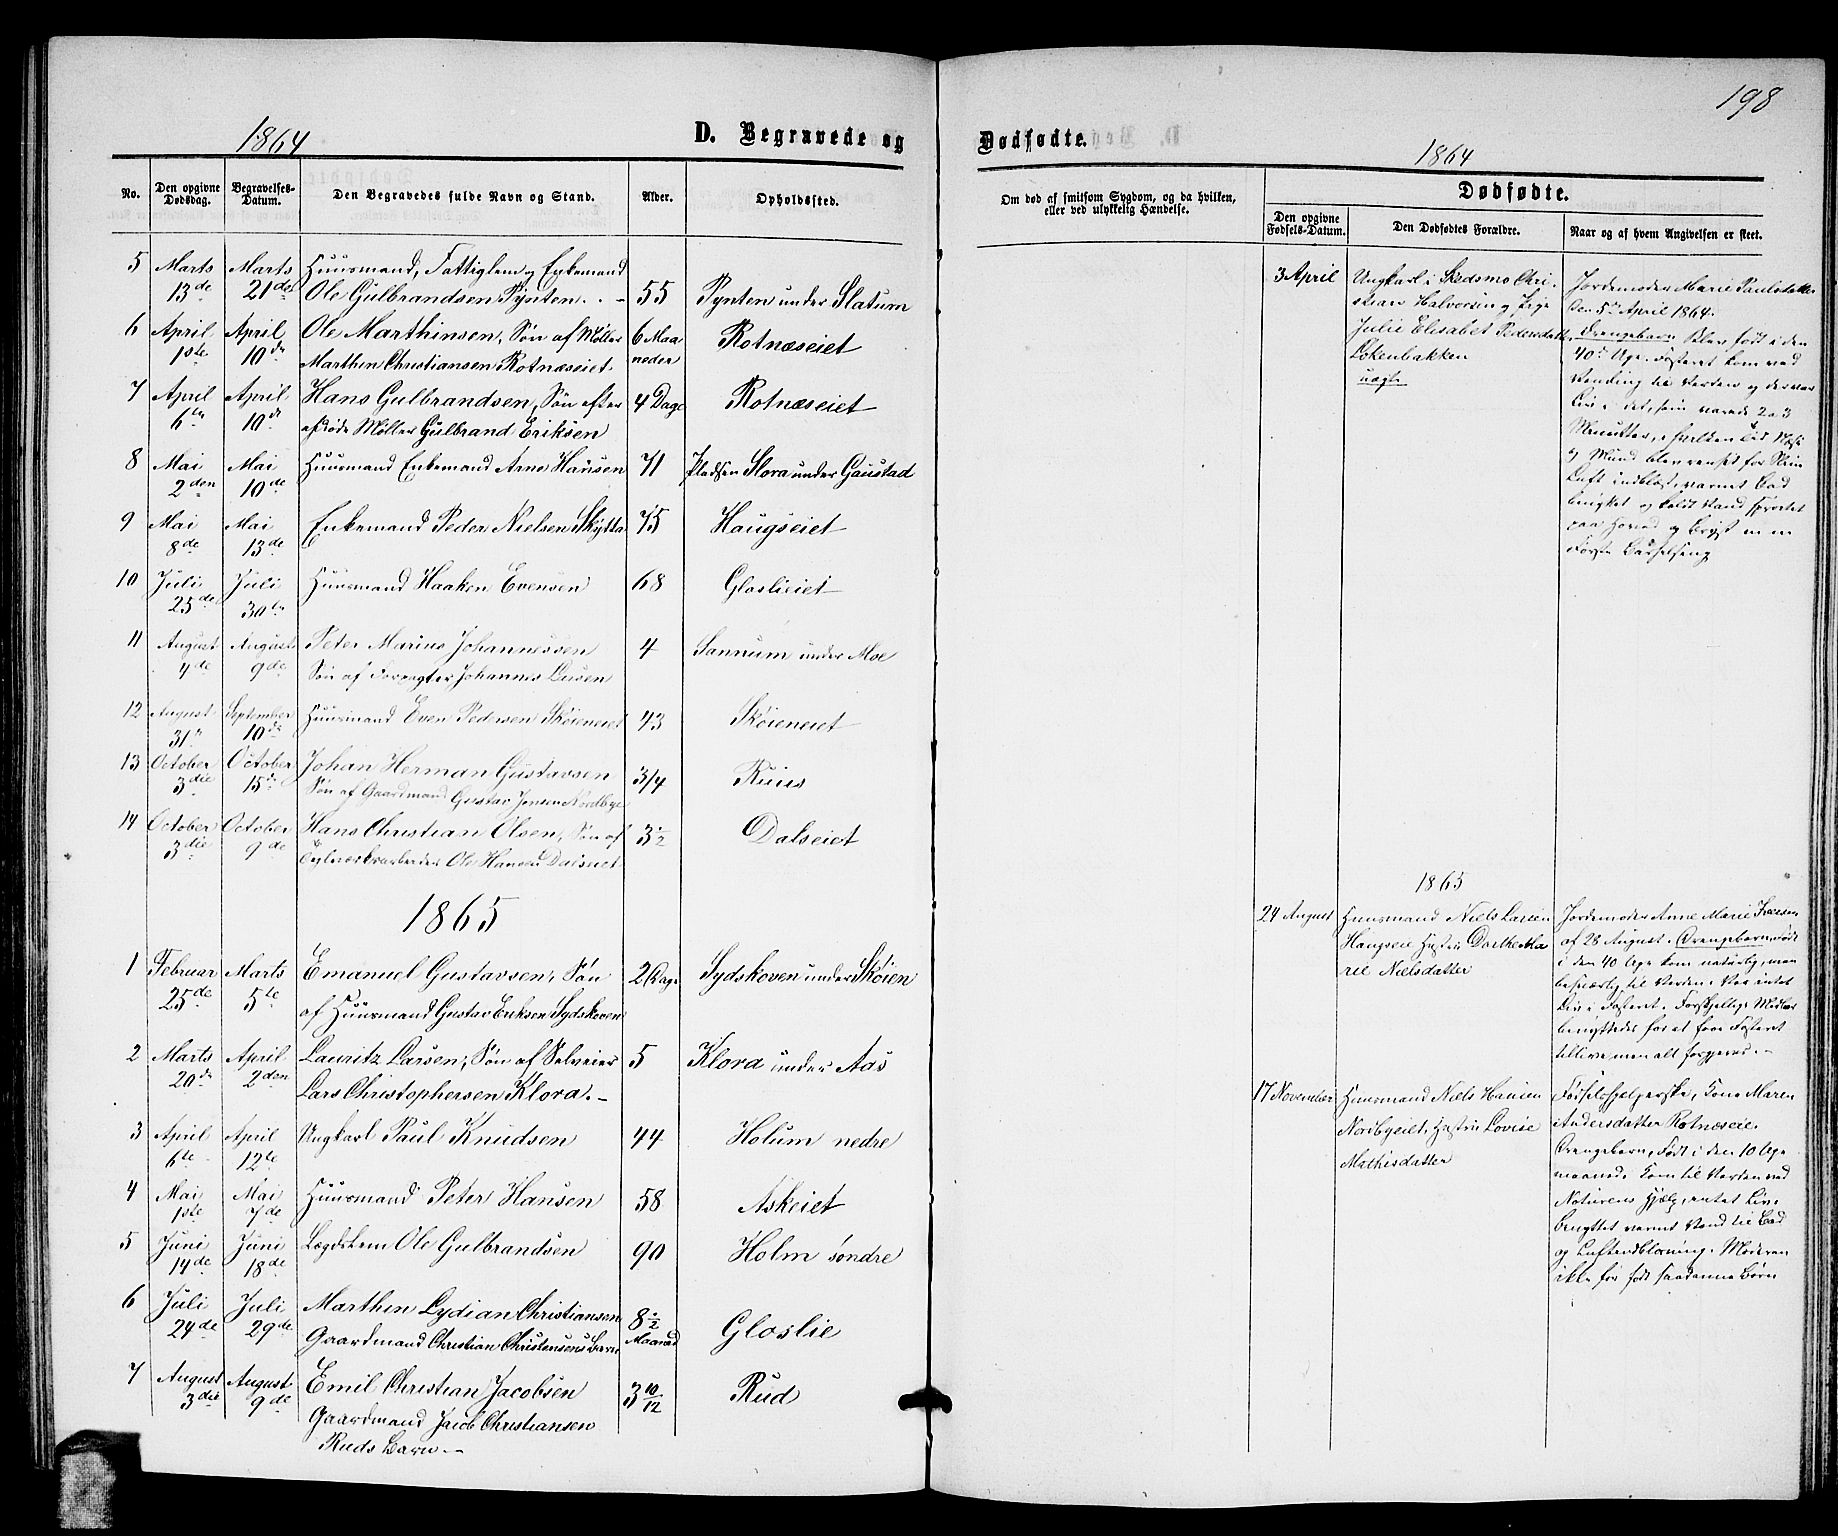 198
1864
D. Begravede og
Dødfødte.
1864
No.
Den opgivne Dødsdag.
Begravelses-Datum.
Den Begravedes fulde Navn og Stand.
Alder.
Opholdssted.
Om død af smitsom Sygdom, og da hvilken,
eller ved ulykkelig Hændelse.
Dødfødte.
Den opgivne Fødsels-Datum.
Den Dødfødtes Forældre.
Naar og af hvem Angivelsen er skeet.
5 Marts Marts Huusmand, Fattiglem og Enkemand
13de 21de Ole Gulbrandsen Pynten. 55 Pynten under Slatum
6 April April Ole Marthinsen, Søn af Møller 6 Maa
1ste 10de Marthin Christiansen Rotnæseiet. neder Rotnæseiet
7 April April Hans Gulbrandsen, Søn efter 4 Dage Rotnæseiet
6te 10de afdøde Møller Gulbrand Eriksen
8 Mai Mai Huusmand Enkemand Arne Hansen 71 Pladsen Slora under Gaustad
2den 10de
9 Mai Mai Enkemand Peder Nielsen Skytta 75 Haugseiet
8de 13de
10 Juli Juli Huusmand Haaken Evensen 68 Gloslieiet
25de 30te
11 August August Peter Marius Johannessen 4 Sannum under Moe
4de 9de Søn af Forpagter Johannes
12 August September Huusmand Even Pedersen Skøieneiet 43 Skøieneiet
31te 10de
13 October October Johan Herman Gustavsen 3/4 Ruus
3die 15de Søn af Gaardmand Gustav Jensen Nordbye
14 October October Hans Christian Olsen, Søn af 3½ Dalseiet
3die 9de Ole Hansen Dalseiet
1865
1 Februar Marts Emanuel Gustavsen, Søn 2 Dage Sydskoven under Skøien
25de 5te af Huusmand Gustav Eriksen Sydskoven
2 Marts April Lauritz Larsen, Søn af Selveier 5 Klora under Aas
20de 2den Lars Christophersen Klora.
3 April April Ungkarl Paul Knudsen 44 Holum nedre
6te 12te
4 Mai Mai Huusmand Peter Hansen 58 Askeiet
1ste 7de
5 Juni Juni Lægdslem Ole Gulbrandsen 90 Holm søndre
14de 18de
6 Juli Juli Marthin Lydian Christiansen 8½ Gloslie
24de 29de Gaardmand Christian Christensens Barn Maaned
7 August August Emil Christian Jacobsen 3 10/12 Rud
3die 9de Gaardmand Jacob Christiansen
Ruds Barn.
3 April
Ungkarl i Skedsmo Chri-
stian Halvorsen og Pige
Julie Elisabet Pedersdatter
Løkenbakken
uægte
Jordemoder Marie Paulsdatter
den 5te April 1864.
Drengebarn blev født i den
40de Uge. Fosteret kom ved
Vending til Verden og der var
Liv i det, som varede 2 a 3
Minutter, i hvilken Tid Næse
og Mund blev renset for Slim
Luft indblæst, varmt Bad
benyttet og koldt Vand sprøitet
paa Hoved og Bryst
Første Barselseng
1865
24 August
Huusmand Niels Larsen
Haugseie Hustru Dorthe Ma
rie Nielsdatter
Jordemoder Anne Marie Iversen
af 28 August. Drengebarn, Født
i den 40 Uge kom naturlig, men
besværlig til Verden. Var intet
Liv i Fosteret. Forskjellige Midler
benyttedes for at faae Fosteret
tillive, men alt forgjeves.
17 November
Huusmand Niels Hansen
Nordbyeiet, Hustru Lovise
Mathisdatter
Fødselshjelperske, Kone Maren
Andersdatter Rotnæseie.
Drengebarn, Født i den 10
maaned. Kom til Verden ved
Naturens Hjælp, intet Liv.
Benyttet varmt Vand til Bad
og Luftindblæsning. Moderen
ikke før født saadanne Børn